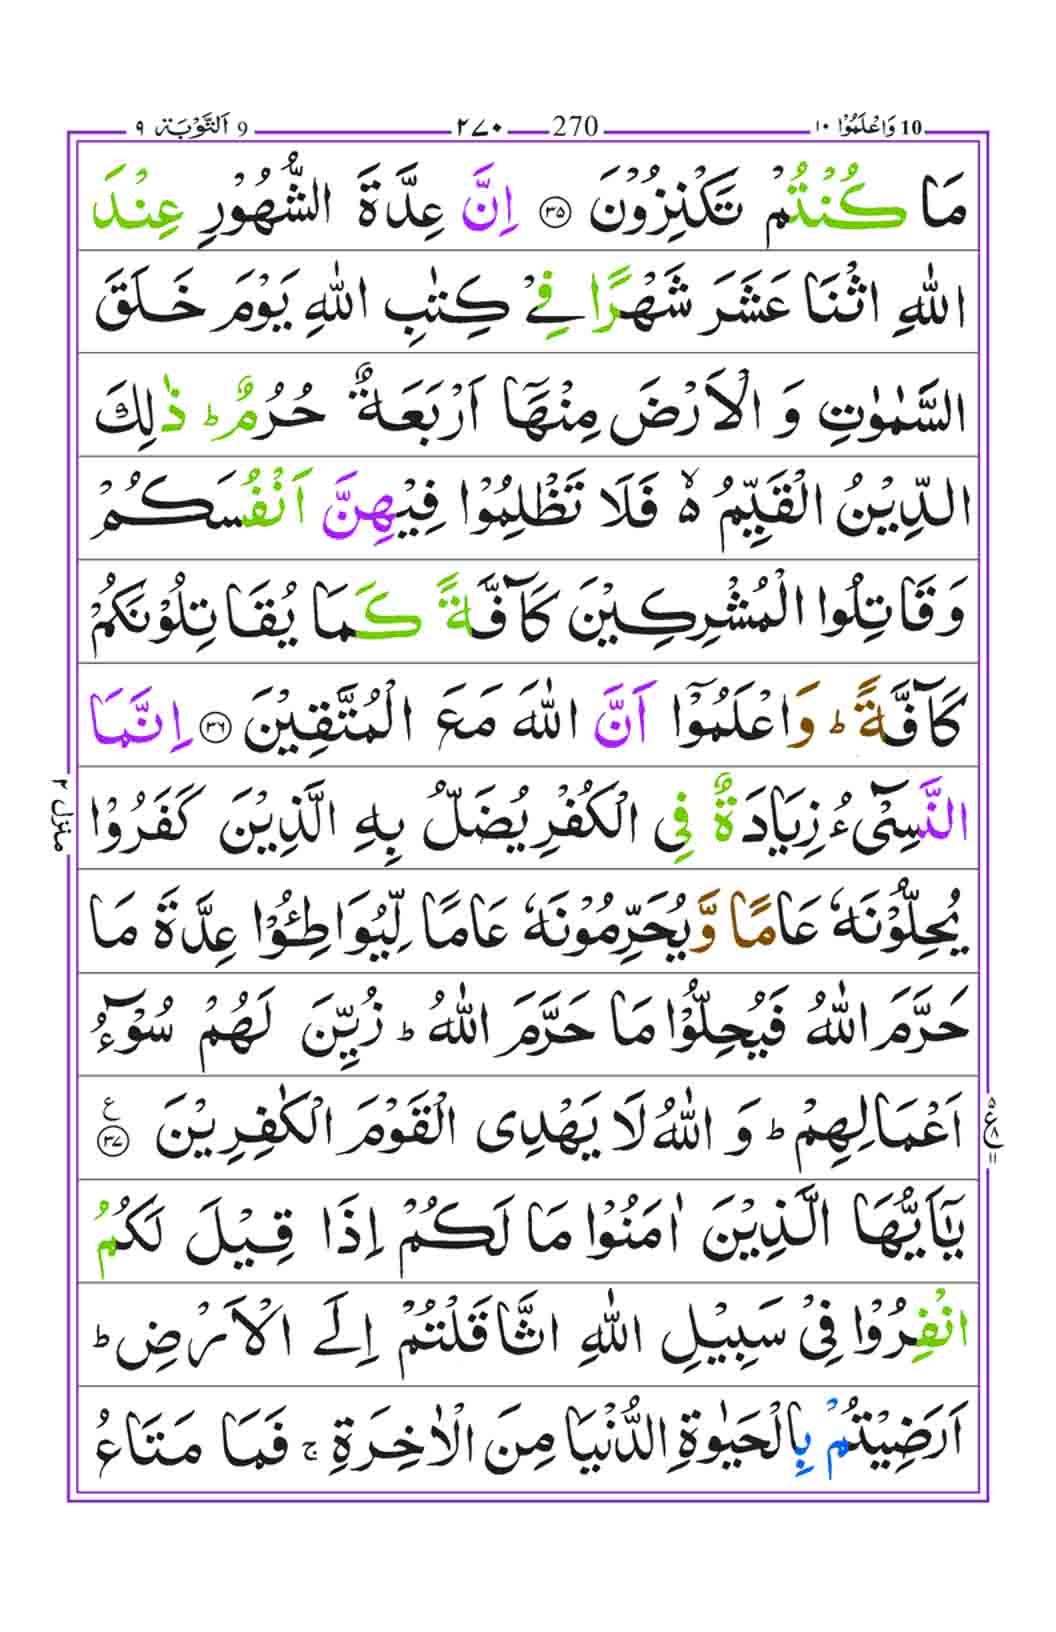 وَاعْلَمُوْا ١٠ 10 270 ٢٧٠ اَلتَّوْبَة ٩ 9
مَا كُنْتُمْ تَكْنِزُوْنَ ۝٣٥ اِنَّ عِدَّةَ الشُّهُوْرِ عِنْدَ
اللّٰهِ اثْنَا عَشَرَ شَهْرًا فِيْ كِتٰبِ اللّٰهِ يَوْمَ خَلَقَ
السَّمٰوٰتِ وَ الْاَرْضَ مِنْهَاۤ اَرْبَعَةٌ حُرُمٌ ؕ ذٰلِكَ
الدِّيْنُ الْقَيِّمُ ۙ فَلَا تَظْلِمُوْا فِيْهِنَّ اَنْفُسَكُمْ
وَقَاتِلُوا الْمُشْرِكِيْنَ كَآفَّةً كَمَا يُقَاتِلُوْنَكُمْ
كَآفَّةً ؕ وَاعْلَمُوْۤا اَنَّ اللّٰهَ مَعَ الْمُتَّقِيْنَ ۝٣٦ اِنَّمَا
النَّسِيْٓءُ زِيَادَةٌ فِي الْكُفْرِ يُضَلُّ بِهِ الَّذِيْنَ كَفَرُوْا
يُحِلُّوْنَهٗ عَامًا وَّيُحَرِّمُوْنَهٗ عَامًا لِّيُوَاطِـُٔوْا عِدَّةَ مَا
حَرَّمَ اللّٰهُ فَيُحِلُّوْا مَا حَرَّمَ اللّٰهُ ؕ زُيِّنَ لَهُمْ سُوْٓءُ
اَعْمَالِهِمْ ؕ وَ اللّٰهُ لَا يَهْدِى الْقَوْمَ الْكٰفِرِيْنَ ۝٣٧ ع
يٰۤاَيُّهَا الَّذِيْنَ اٰمَنُوْا مَا لَكُمْ اِذَا قِيْلَ لَكُمُ
انْفِرُوْا فِيْ سَبِيْلِ اللّٰهِ اثَّاقَلْتُمْ اِلَى الْاَرْضِ ؕ
اَرَضِيْتُمْ بِالْحَيٰوةِ الدُّنْيَا مِنَ الْاٰخِرَةِ ۚ فَمَا مَتَاعُ
منزل ٢
٥ ع ٨ ١١